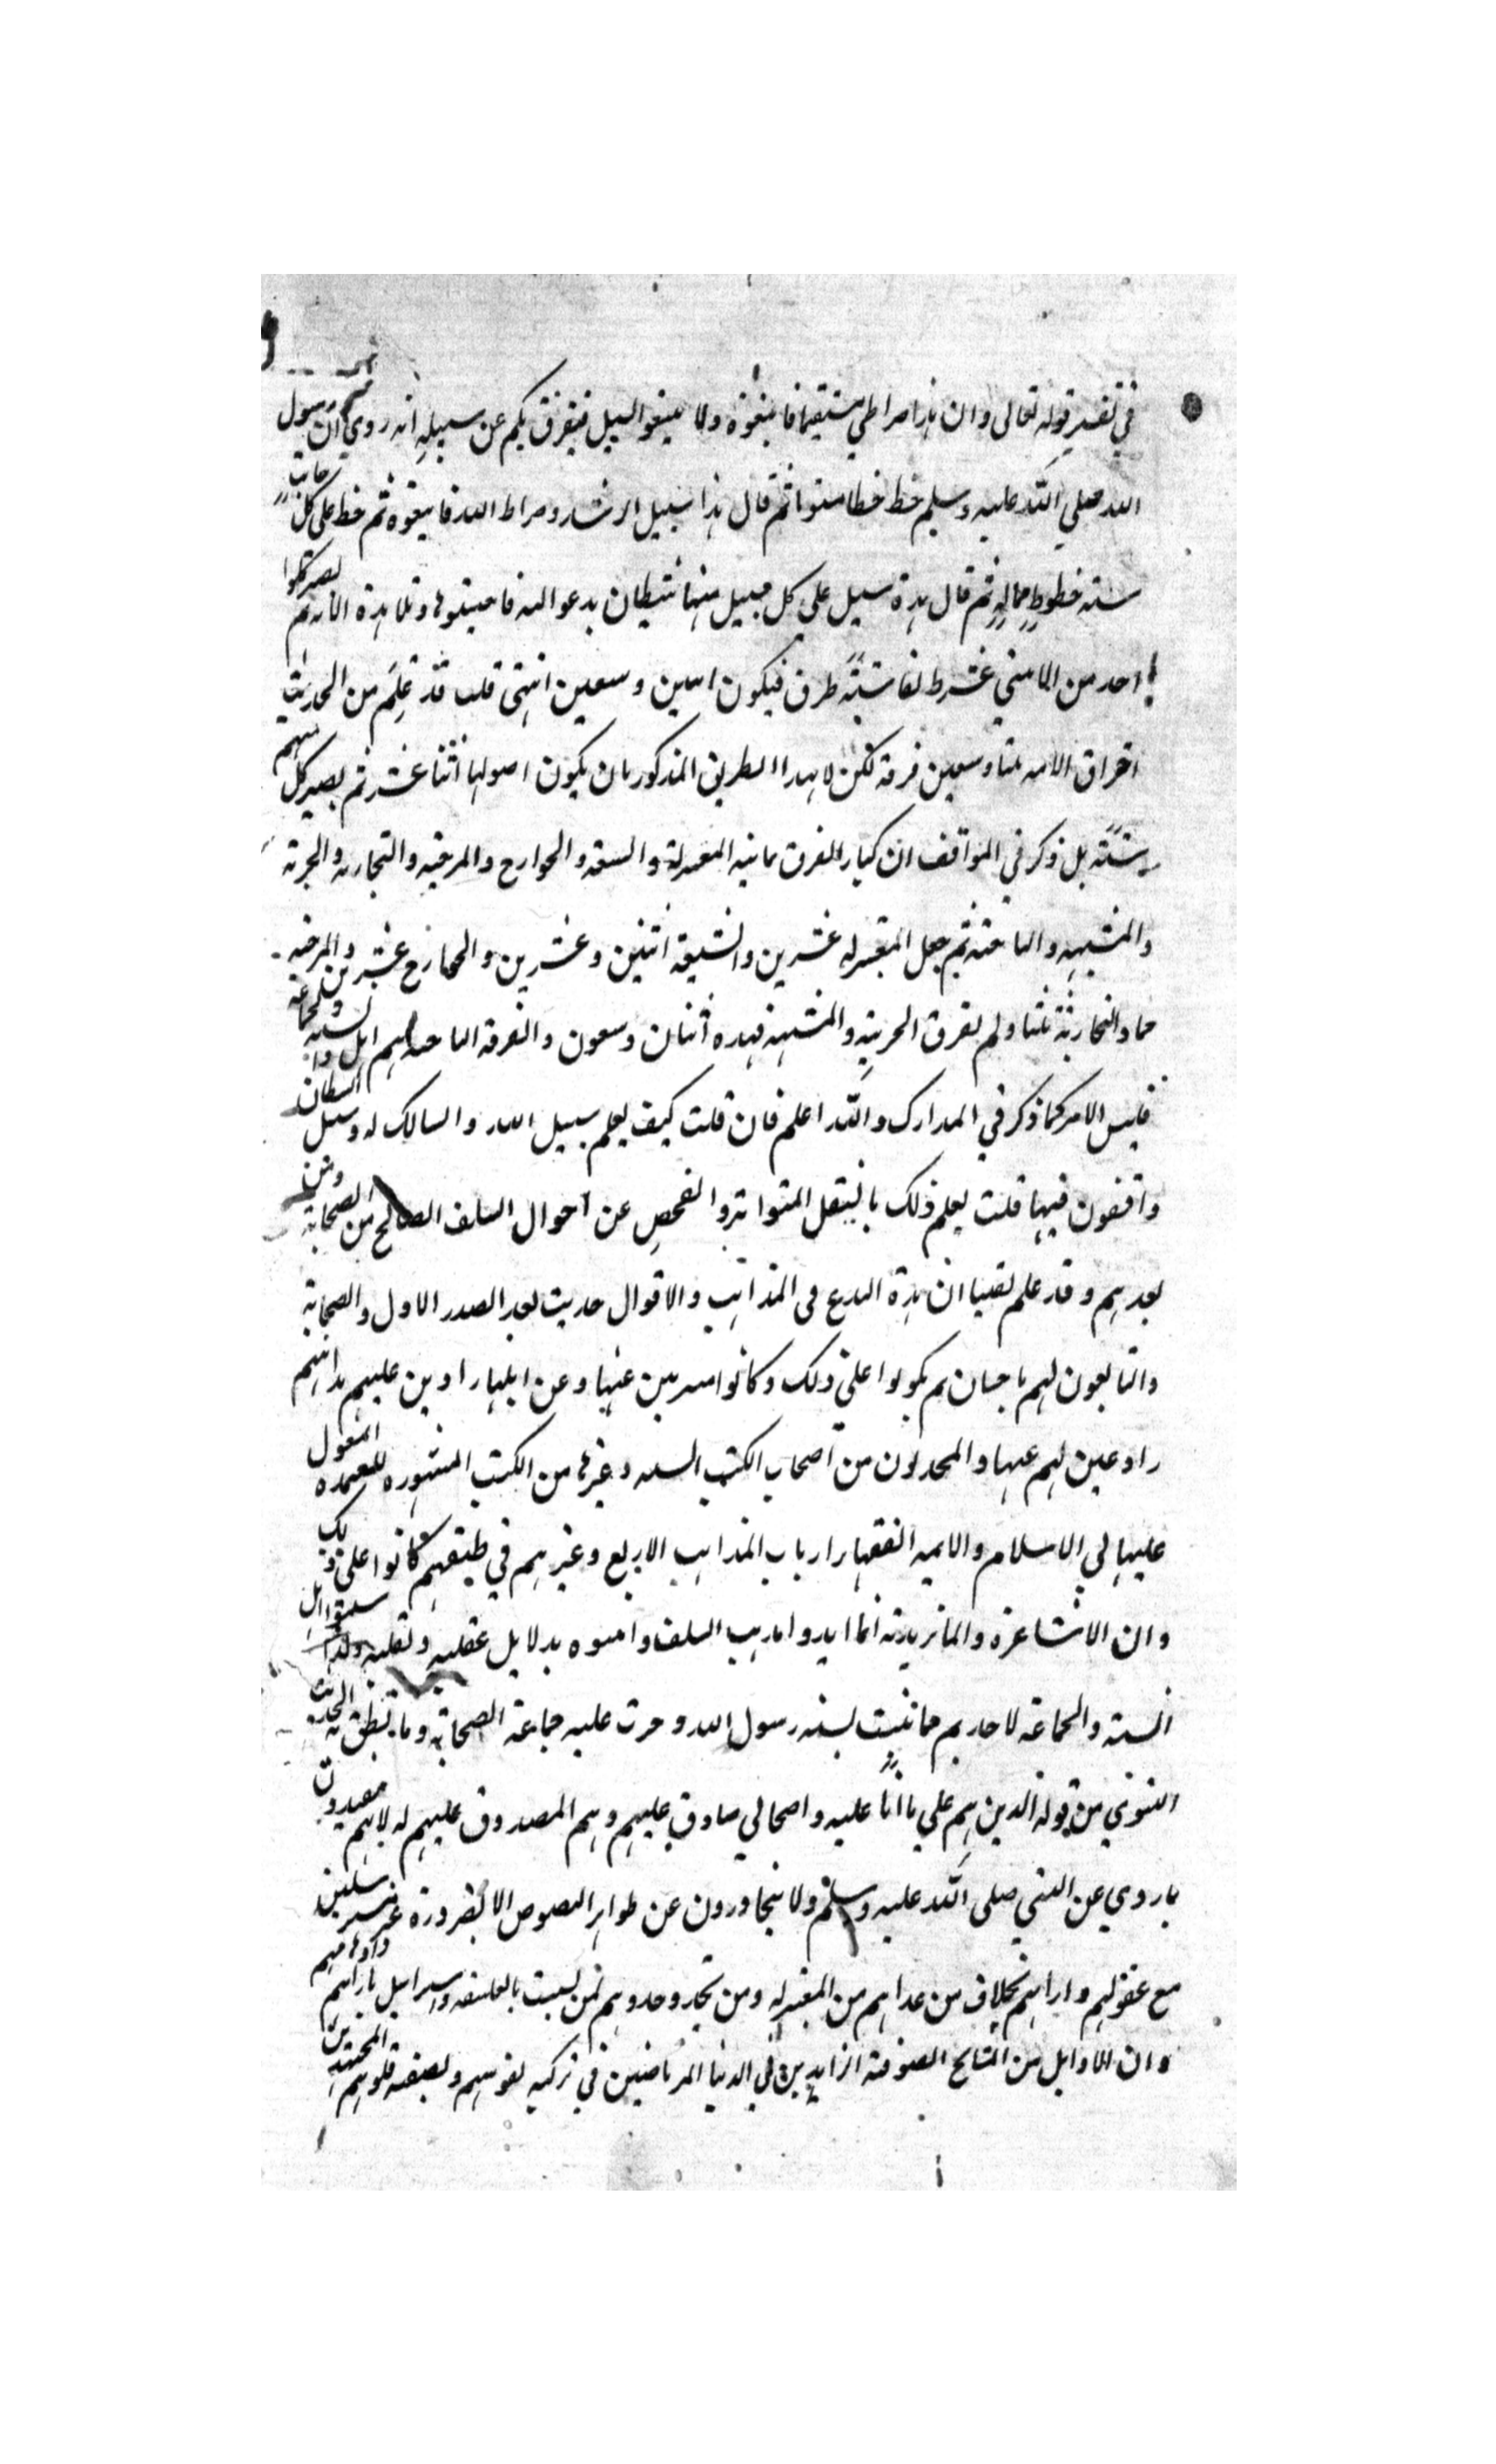 في تفسير قوله تعالى وان هذا صراطي مستقيما فاتبعوه ولا تتبعوا السبل فتفرق بكم عن سبيله انه روي ان رسول
الله صلي الله عليه وسلم خط خطا مستويا ثم قال هذا سبيل الرشد وصراط الله فاتبعوه ثم خط على كل جانب
سته خطوط مماله ثم قال هذه سبل على كل سبيل منها شيطان يدعو اليه فاجتنبوها وتلا هذه الايه ثم يصير كل
واحد من الاثني عشر طريقا ستة طرق فيكون اثنين وسبعين انتهى قلت قد علم من الحديث
افتراق الامه ثلثا وسبعين فرقة لكن لا بهذا الطريق المذكور بان يكون اصولها اثنا عشر ثم يصير كل منهم
ستة بل ذكر في المواقف ان كبار الفرق ثمانيه المعتزلة والشيعة والخوارج والمرجيه والنجاريه والجبريه
والمشبهه والناجيه ثم جعل المعتزله عشرين والشيعة اثنين وعشرين والخوارج عشرين والمرجيه
خمسا والنجارية ثلثا ولم يفرق الجبرية والمشبهة فهذه اثنان وسبعون والفرقة الناجية هم اهل السنة والجماعة
فليس الامر كما ذكر في المدارك والله اعلم فان قلت كيف يعلم سبيل الله والسالك له وسبل الشيطان
واقفون فيها قلت يعلم ذلك بالنقل المتواتر والفحص عن احوال السلف الصالح من الصحابة ومن
بعدهم وقد علم يقينا ان هذه البدع في المذاهب والاقوال حديث بعد الصدر الاول والصحابة
والتابعون لهم باحسان لم يكونوا على ذلك وكانوا متبرئين عنها وعن اهلها رادين عليهم مذاهبهم
رادعين لهم عنها والمحدثون من اصحاب الكتب السته وغيرها من الكتب المشهوره المعمده المعول
عليها في الاسلام والايمه الفقهاء ارباب المذاهب الاربع وغيرهم في طبقتهم كانوا على ذلك
وان الاشاعرة والماتريدية انما ايدوا مذهب السلف واثبتوه بدلايل عقليه ونقليه ولذا سموا اهل
السنه والجماعه لاخذهم مما ثبت بسنه رسول الله وجرت عليه جماعة الصحابة وما ينطق به الحديث
النبوي من قوله الذين هم علي ما انا عليه واصحابي صادق عليهم وهم المصدوق عليهم له لانهم مقيدون
بما روي عن النبي صلى الله عليه وسلم ولا يتجاوزون عن ظواهر النصوص الا لضرورة غير مسترسلين
مع عقولهم وارائهم بخلاف من عداهم من المعتزله ومن يحذو حذوهم ممن تشبث بالفلسفه واسترسل بارائهم واهوائهم
وان الاوايل من المشايخ الصوفية الزاهدين في الدنيا المرتاضين في تزكيه نفوسهم وتصفية قلوبهم المجتهدين